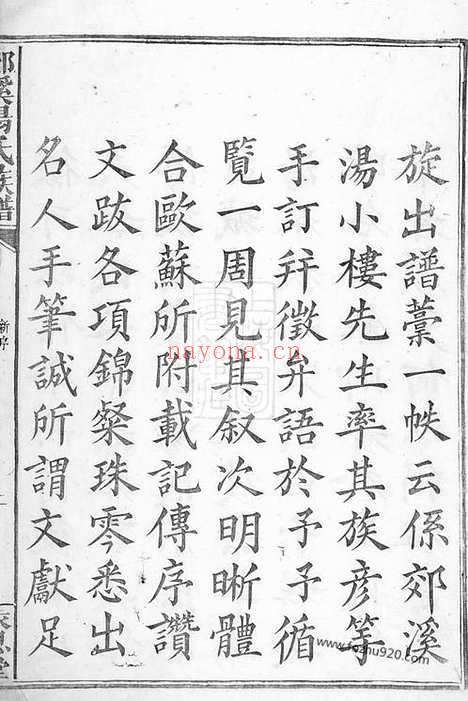 旋出譜藁一帙云係郊溪
湯小樓先生率其族彥等
手訂并徵弁語於予予循
覽一周見其叙次明晰體
合歐蘇所附載記傳序讚
文跋各項錦粲珠零悉出
名人手筆誠所謂文獻足
郊溪湯氏族譜
新序
nayona.cn
www.fozhu920.com